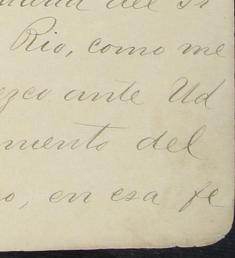 del
Rio, como me
ezco ante Ud
mento del
o, en esa fe